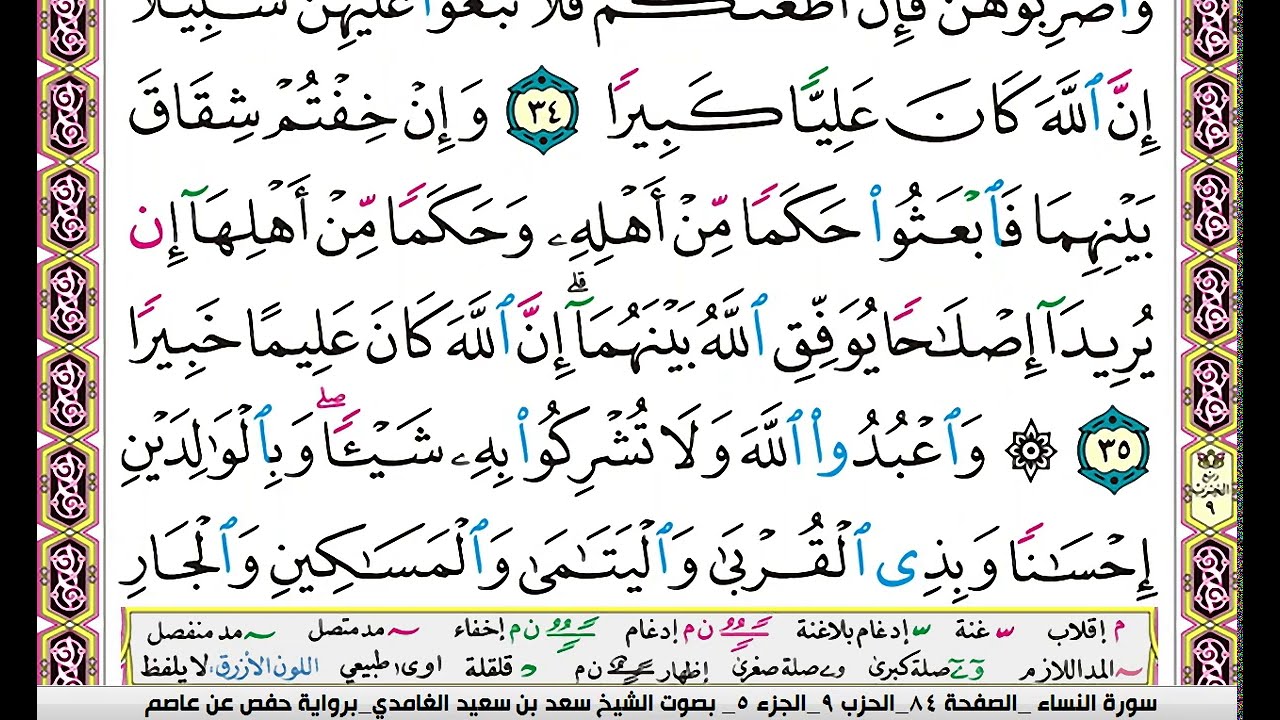 وَٱضْرِبُوهُنَّ فَإِنْ أَطَعْنَكُمْ فَلَا تَبْغُوا۟ عَلَيْهِنَّ سَبِيلًا
إِنَّ ٱللَّهَ كَانَ عَلِيًّا كَبِيرًا ٣٤ وَإِنْ خِفْتُمْ شِقَاقَ
بَيْنِهِمَا فَٱبْعَثُوا۟ حَكَمًا مِّنْ أَهْلِهِۦ وَحَكَمًا مِّنْ أَهْلِهَآ إِن
يُرِيدَآ إِصْلَـٰحًا يُوَفِّقِ ٱللَّهُ بَيْنَهُمَآ ۗ إِنَّ ٱللَّهَ كَانَ عَلِيمًا خَبِيرًا
٣٥ ۞ وَٱعْبُدُوا۟ ٱللَّهَ وَلَا تُشْرِكُوا۟ بِهِۦ شَيْـًٔا ۖ وَبِٱلْوَٰلِدَيْنِ
إِحْسَـٰنًا وَبِذِى ٱلْقُرْبَىٰ وَٱلْيَتَـٰمَىٰ وَٱلْمَسَـٰكِينِ وَٱلْجَارِ
ربع الحزب ٩
م إقلاب س غنة س إدغام بلاغنة ن م إدغام ن م إخفاء مد متصل مد منفصل
المد اللازم صلة كبرى صلة صغرى إظهار ن م د قلقلة اوى طبيعي اللون الأزرق: لا يلفظ
سورة النساء _الصفحة ٨٤_الحزب ٩_الجزء ٥_ بصوت الشيخ سعد بن سعيد الغامدي_برواية حفص عن عاصم